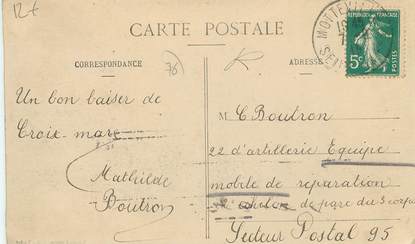 12€
CARTE POSTALE
CORRESPONDANCE
76
ADRESSE
MOTTEVILLE
5c
Un bon baiser de
Croix-mare
Mathilde
Boutron
M. C Boutron
22 d'artillerie Equipe
mobile de réparation
de parc du 3 corps
Secteur Postal 95